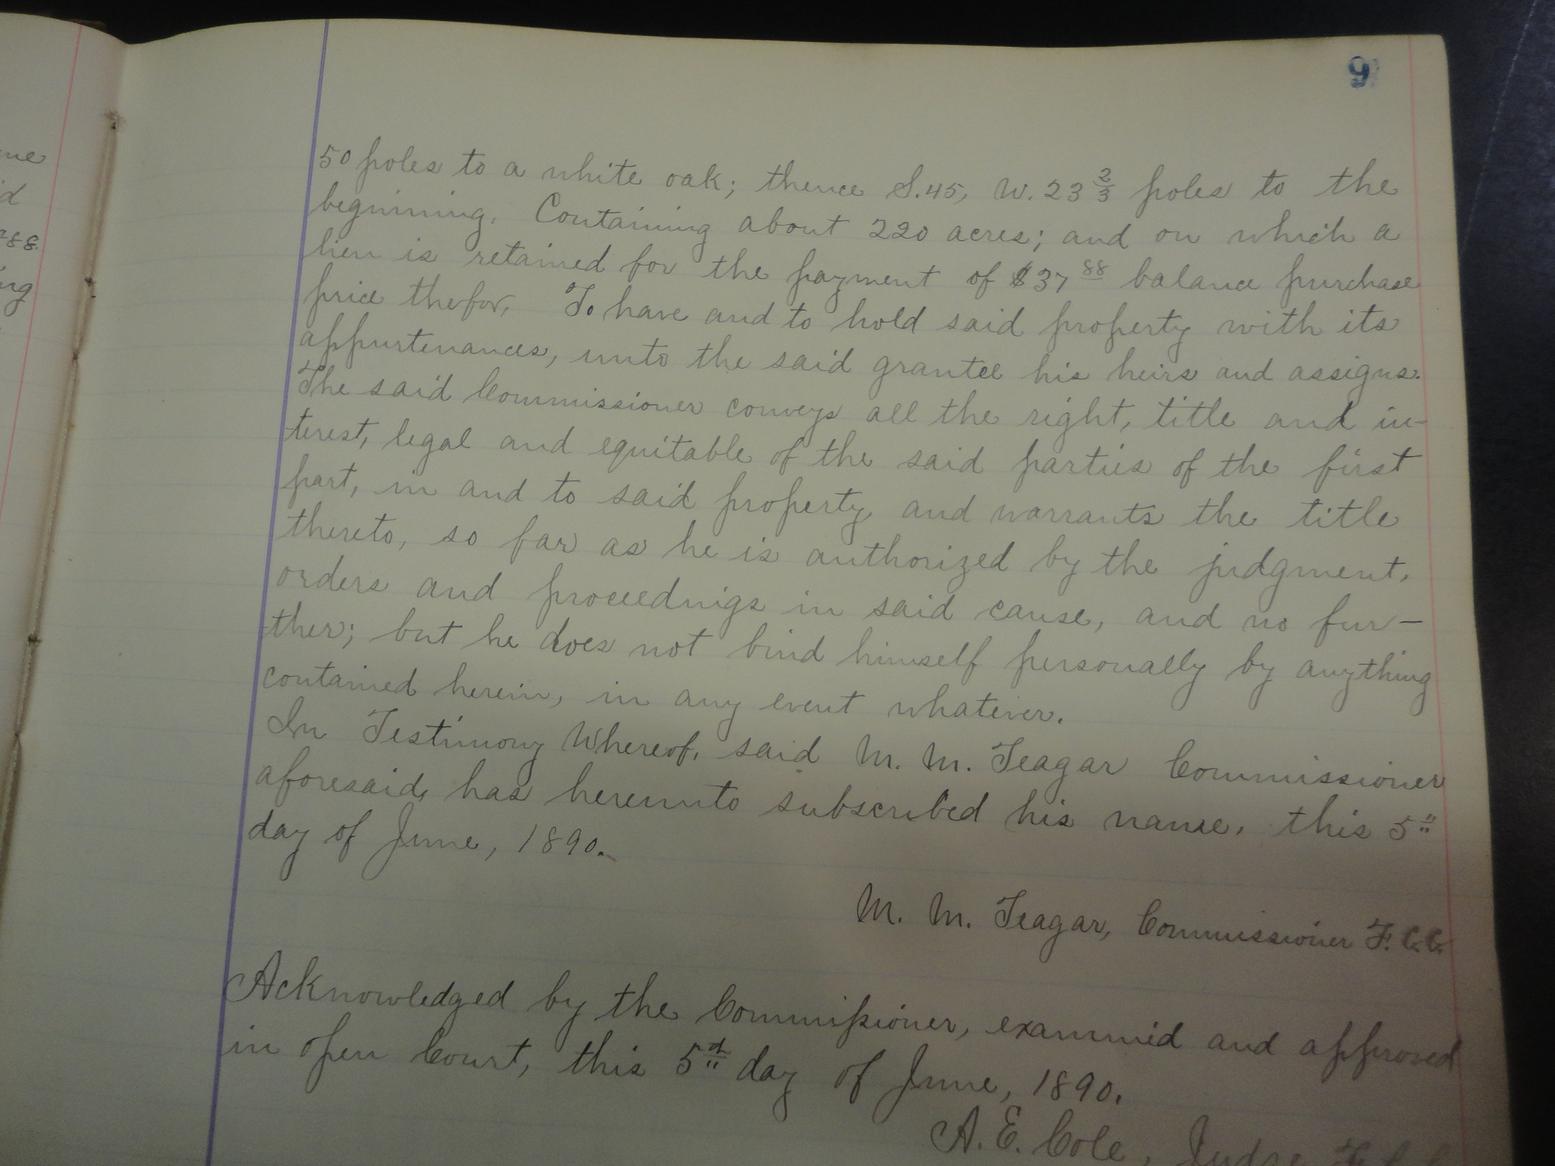 9
50 poles to a white oak; thence S. 45, W. 23 2/3 poles to the
beginning. Containing about 220 acres; and on which a
lien is retained for the payment of $37 88 balance purchase
price thefor, To have and to hold said property with its
appurtenances, unto the said grantee his heirs and assigns.
The said Commissioner conveys all the right, title and in-
terest, legal and equitable of the said parties of the first
part, in and to said property and warrants the title
thereto, so far as he is authorized by the judgment,
orders and proceedings in said cause, and no fur-
ther; but he does not bind himself personally by anything
contained herein, in any event whatever.
In Testimony Whereof, said M. M. Teagar Commissioner
aforesaid, has hereunto subscribed his name, this 5"
day of June, 1890.
M. M. Teagar, Commissioner F. C. C.
Acknowledged by the Commissioner, examined and approved
in open Court, this 5th day of June, 1890.
A. E. Cole, Judge F. C. C.
288
ing